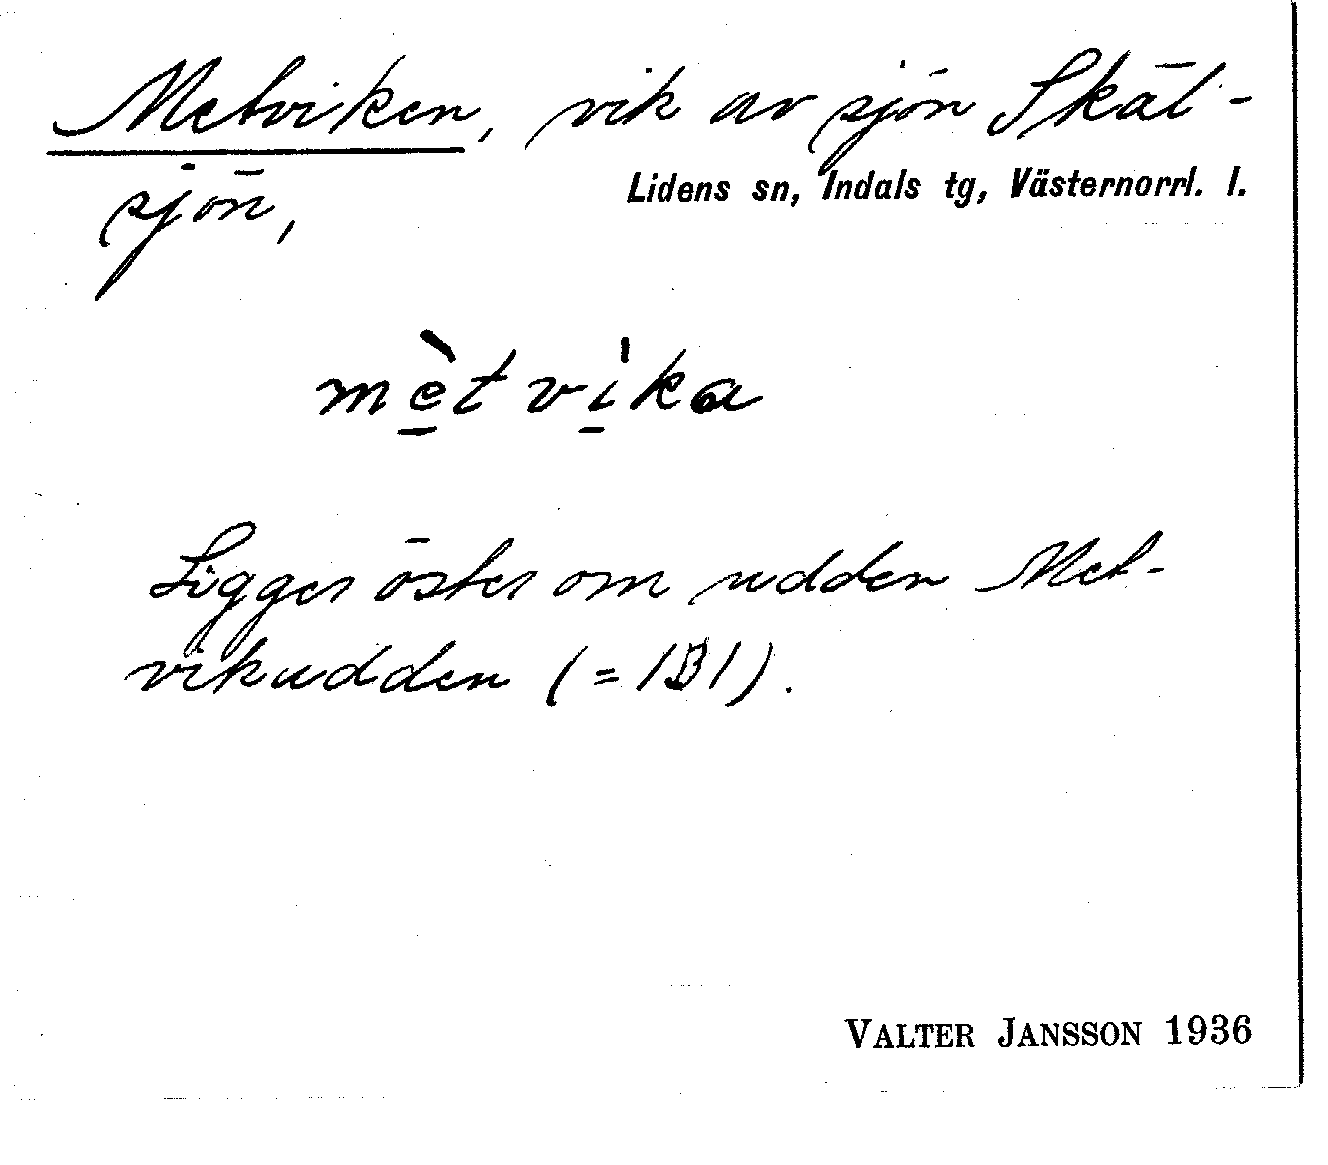 Metviken, vik av sjön Skäl-
sjön,
Lidens sn, Indals tg, Västernorrl. l.
mètvika
Ligger öster om udden Met-
vikudden (= 1B1).
VALTER JANSSON 1936